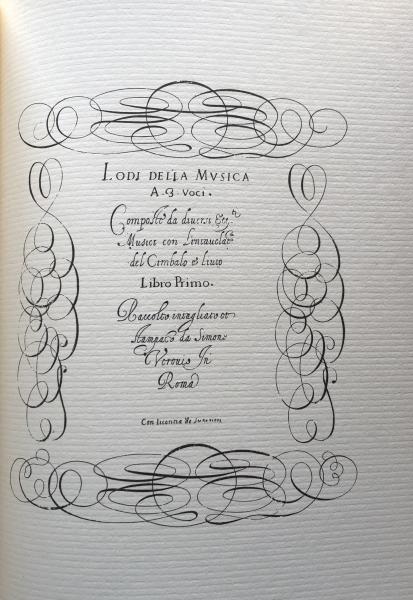 LODI DELLA MVSICA
A · 3 · Voci .
Composte da diuersi Ecc.ti
Musici con L'intauolat.ra
del Cimbalo et liuto
Libro Primo.
Raccolto intagliato et
stampato da Simone
Verouio In
Roma
Con licenza de Superiori